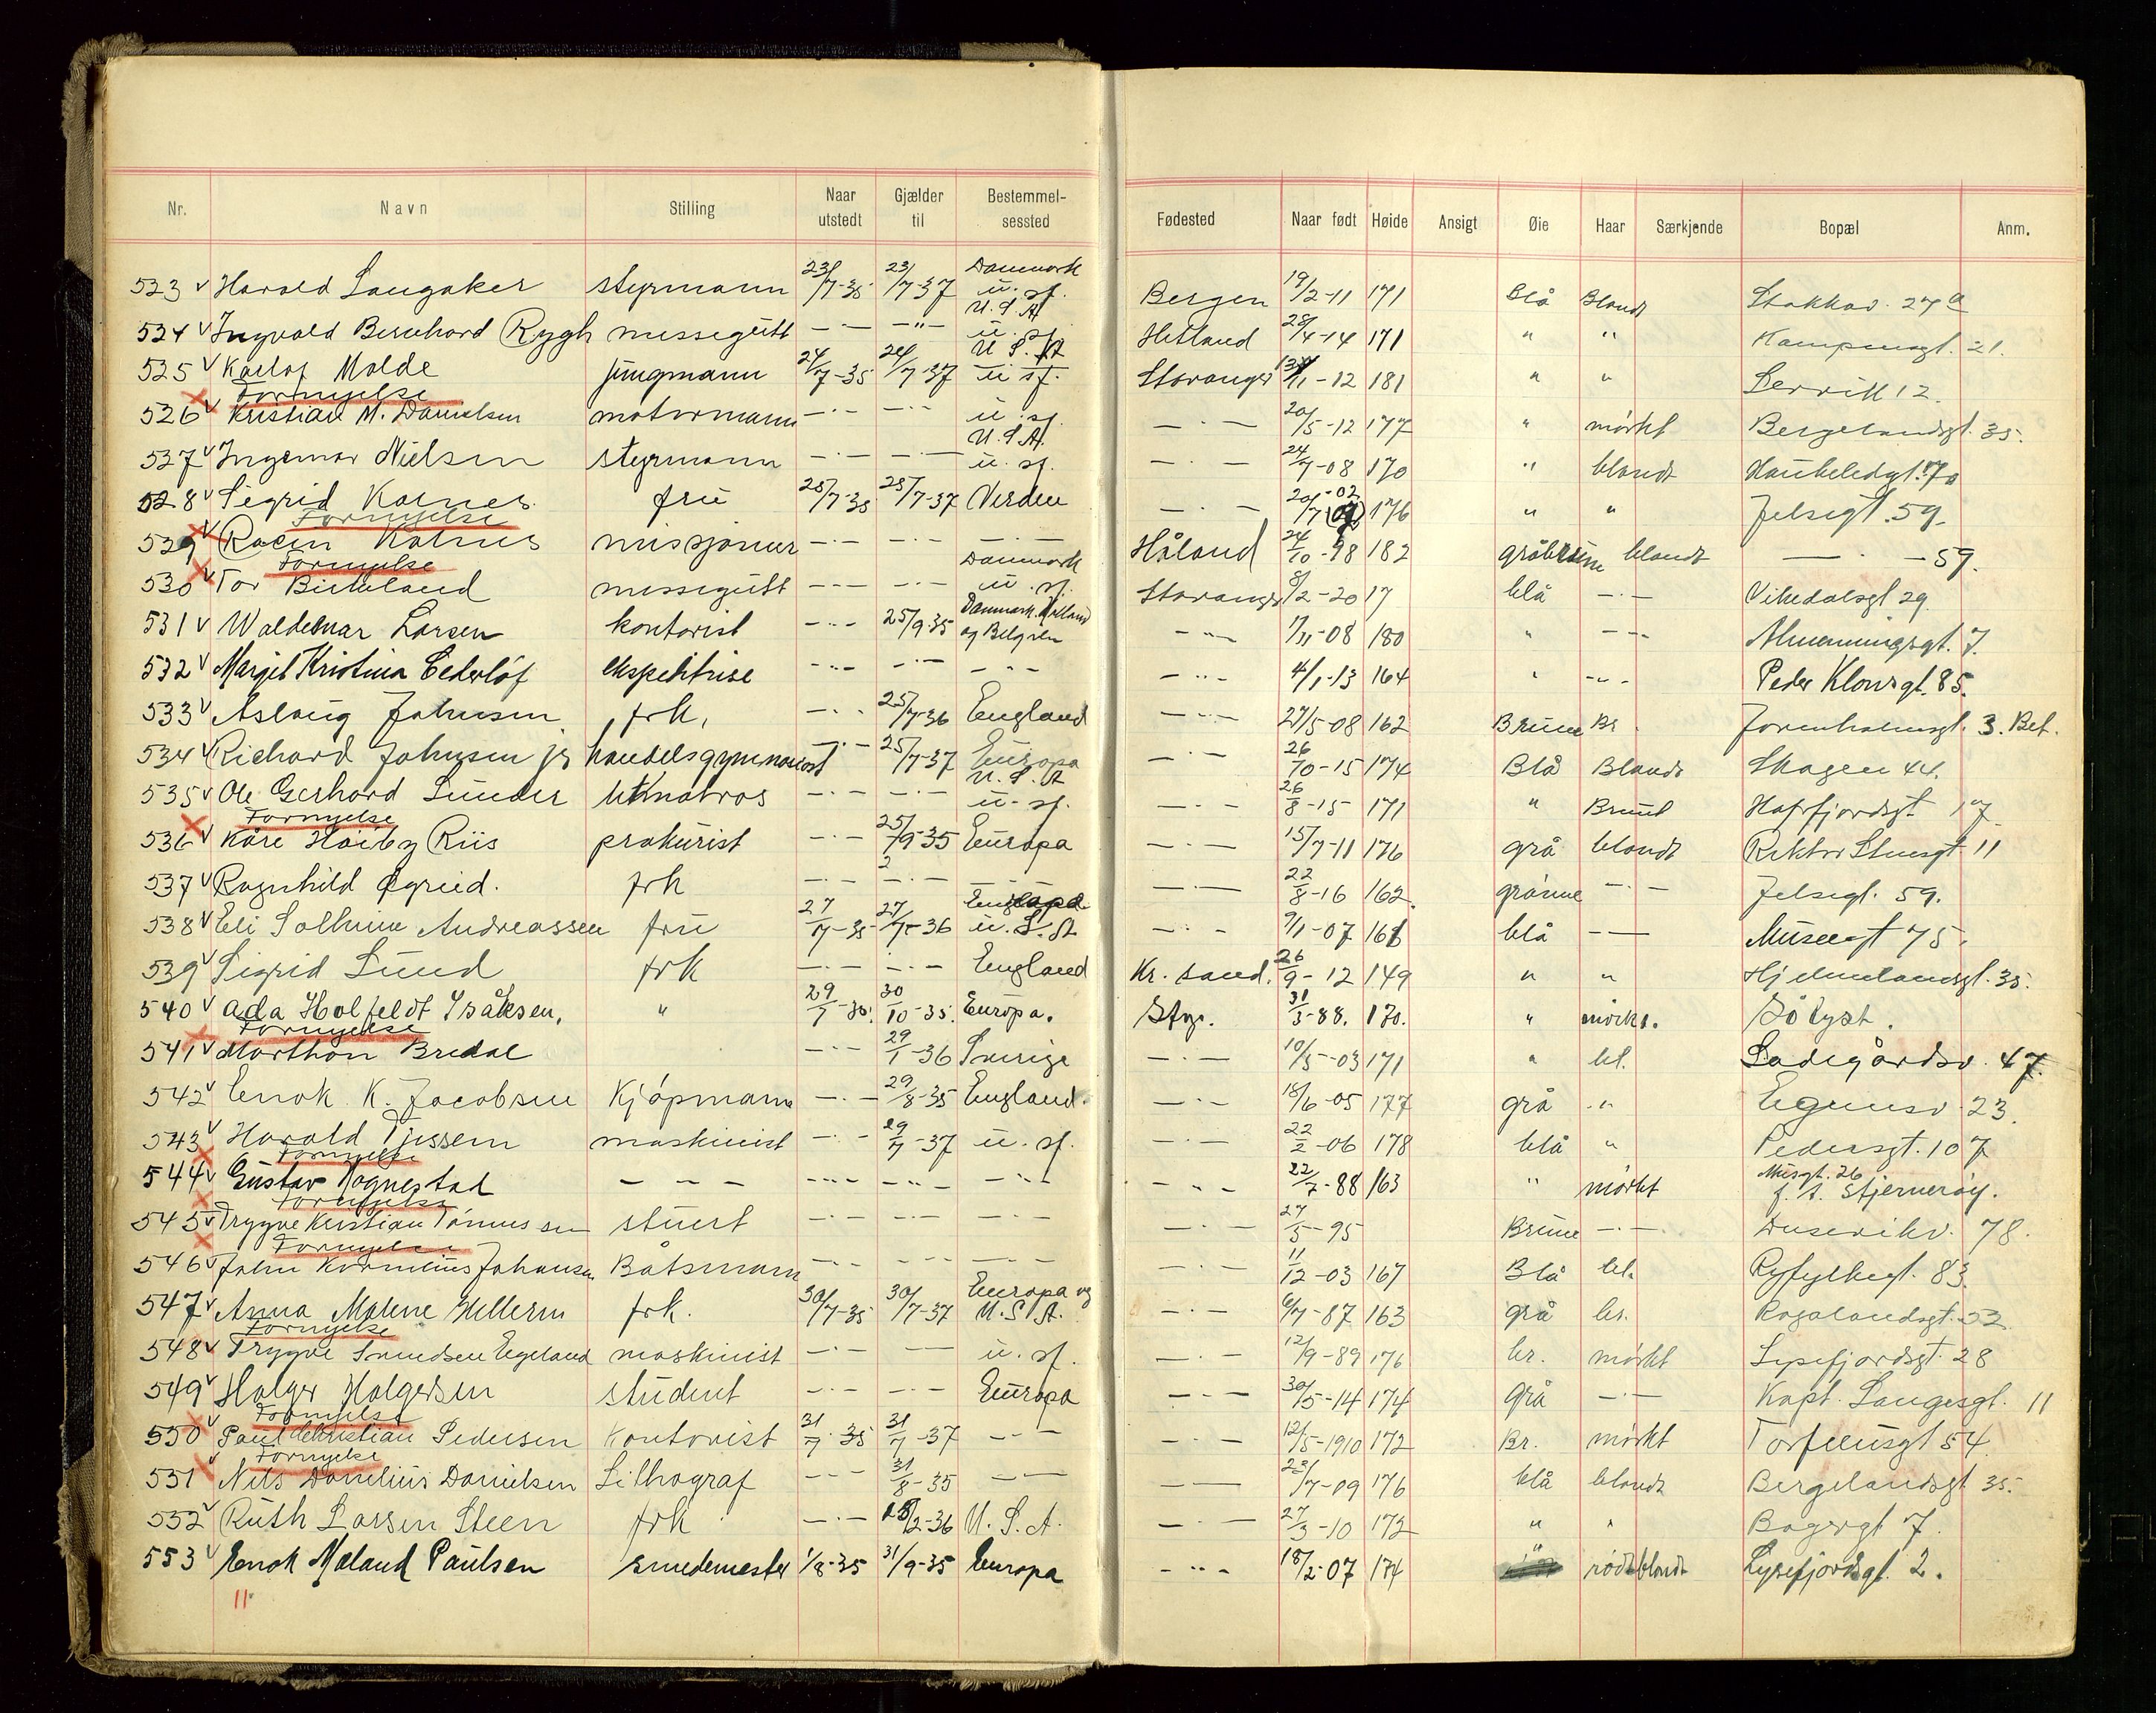 Nr. Navn Stilling Naar utstedt Gjælder til Bestemmel-sessted Fødested Naar født Høide Ansigt Øie Haar Særkjende Bopæl Anm.
523 v Harald Langaker styrmann 23/7-35 23/7-37 Danmark u. sf. Bergen 19/2-11 171 Blå Blondt Stokkav. 27a
524 v Ingvald Bernhard Rygh messegutt —·— —"— U.S.A. u. sf. Hetland 28/4-14 171 " " Kampensgt. 21.
525 v Karlof Molde jungmann 24/7-35 24/7-37 U.S.A. u sf. Stavanger 11-12 181 " " 12.
Fornyelse
526 v Kristian M. Danielsen motormann —·— —·— u. sf. —·— 20/5-12 177 " mörkt Bergelandsgt. 35.
527 v Ingemar Nielsen styrmann —·— —·— U.S.A. u. sf. —·— 24/7-08 170 " blondt
528 v Sigrid Kornes fru 25/7-35 25/7-37 Verden —·— 20/7-02 176 " " Jelsagt. 59.
Fornyelse
529 v Kornes misjonær —·— —·— —·— Håland 24/10-98 182 gråbrune blondt —·— 59.
Fornyelse
530 v Tor Birkeland messegutt —·— —·— Danmark u. sf. Stavanger 8/2-20 17 blå —·— Vikedalsgt 29
531 v Waldemar Larsen kontorist —·— 25/9-35 Danmark. Holland og Belgien —"— 7/11-08 180 " —"— Almenningsgt. 7.
532 v Margit Kristina Cederlöf ekspeditrise —"— —·— —"— —"— 4/1-13 164 " —"— Peder Klowsgt. 85.
533 v Aslaug Johnsen frk, —·— 25/7-36 England —·— 27/5-08 162 Brune Br. 3. Bet.
534 v Richard Johnsen jr handelsgymnasist —·— 25/7-37 Europa —·— 26/10-15 174 Blå Blondt Skagen 44.
535 v Ole Gerhard Sunder —·— —·— U.S.A u. sf. —·— 26/8-15 171 " Brunt Hafrsfjordsgt 17
Fornyelse
536 v Kåre Höiby Riis prokurist —·— 25/9-35 Europa —·— 15/7-11 176 grå blondt 11
537 v Ragnhild frk —·— —·— —·— —·— 22/8-16 162. grönne —·— Jelsagt. 59.
538 v Eli Solhime Andreassen fru 27/7-35 27/7-36 u.S.A —·— 9/1-07 168 blå —— Museegt 75.
539 v Sigrid Lund frk —·— —·— England Kr. sand. 26/9-12 149 " " Hjelmelandsgt. 35.
540 v Ada Holfeldt Isåksen, " 29/7-35. 30/10-35. Europa. Stgr. 31/3-88. 170. " mörkt. Sölyst.
Fornyelse
541 v Marthon Bredal —·— 29/1-36 Sverige —·— 10/5-03 171 " bl. Ladegårdsv. 47.
542 v Enok K. Jacobsen Kjöpmann —·— 29/8-35 England. —·— 18/6-05 177 grå " 23.
543 v Harald Tjessem maskinist —·— 29/7-37 u. sf. —·— 22/2-06 178 blå " Pedersgt. 107
Fornyelse
544 v Gustav Rognestad — — — —·— —"— —"— —"— 22/7-88 163 " mörkt Musgt. 26 Stjerneröy.
Fornyelse
545 v Trygve Kristian Tönnessen stuert —·— —·— —·— —·— 27/5-95 Brune —·— Dusevikv. 78.
Fornyelse
546 v John Kornelius Johansen Båtsmann —·— —·— —·— —·— 11/12-03 167 Blå bl. Ryfylkegt. 83
547 v Anna Malene Helleren frk. 30/7-35 30/7-37 Europa og U.S.A. —·— 6/7-87 163 grå br. Rogalandsgt. 52
Fornyelse
548 v Trygve Svendsen Egeland maskinist —·— —— u. sf. —·— 12/9-89 176 br. mörkt Lysefjordsgt. 28
549 v Holger Holgersen student —·— —·— Europa —·— 30/5-14 174 grå —·— Kapt. Langesgt. 11
Fornyelse
550 v Paul Christian Pedersen Kontorist 31/7-35 31/7-37 —·— —·— 12/5-1910 172 Br. mörkt Torfæusgt 54
Fornyelse
551 v Nils Danielius Danielsen Lithograf —·— 31/8-35 —·— —— 23/7-09 176 blå blondt Bergelandsgt 35.
552 v Ruth Larsen Steen frk —·— 28/2-36 U.S.A. —·— 27/3-10 172 " " Bagergt 7.
553 v Enok Maland Paulsen smedemester 1/8-35 31/9-35 Europa —"— 18/2-07 174 " rödtblondt Lysefjordsgt. 2.
11